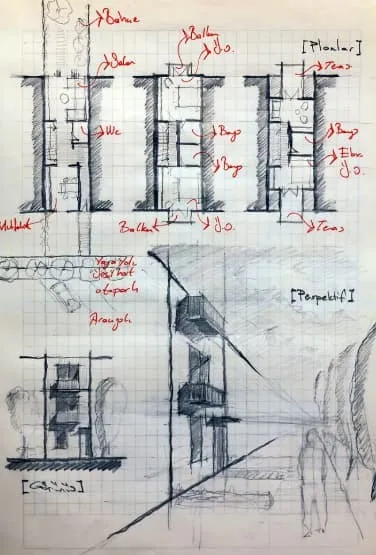 Bahçe
Salon
Wc
Mutfak
Balkon
Y.O.
Banyo
Banyo
Balkon
Y.O.
[Planlar]
Teras
Banyo
Ebv.
Y.O.
Teras
Yaya Yolu
Yeşil hat
otopark
Araç yolu
[Perspektif]
[Görünüş]